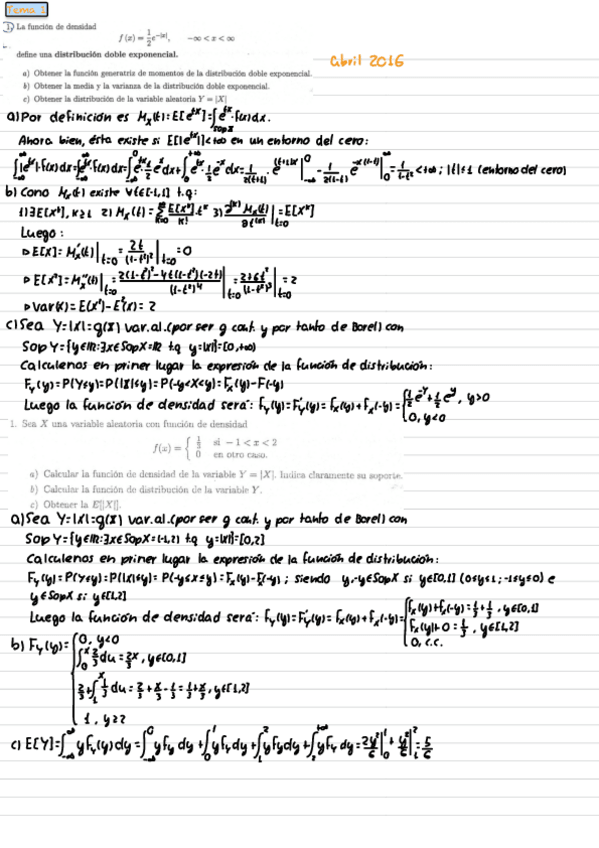 Tema 1
1. La función de densidad
f(x) = 1/2 e^{-|x|}, -∞ < x < ∞
define una distribución doble exponencial.
abril 2016
a) Obtener la función generatriz de momentos de la distribución doble exponencial.
b) Obtener la media y la varianza de la distribución doble exponencial.
c) Obtener la distribución de la variable aleatoria Y = |X|
a) Por definición es M_X(t) = E[e^{tX}] = ∫_{Sop X} e^{tx}·f(x)dx.
Ahora bien, ésta existe si E[|e^{tX}|] < +∞ en un entorno del cero:
b) Como M_X(t) existe ∀t∈[-1,1] t.q:
1) ∃E[X^k], k≥1 2) M_X(t) = Σ_{k=0}^{∞} E[X^k]/k! · t^k 3) ∂^{k)} M_X(t)/∂t^{k)} |_{t=0} = E[X^k]
Luego:
▷ E[X] = M'_X(t)|_{t=0} = 2t/(1-t²)² |_{t=0} = 0
▷ E[X²] = M''_X(t)|_{t=0} = 2(1-t²)²-4t(1-t²)(-2t)/(1-t²)⁴ |_{t=0} = 2+6t²/(1-t²)³ |_{t=0} = 2
▷ Var(X) = E(X²) - E²(X) = 2
c) Sea Y=|X|=g(X) var.al. (por ser g cont. y por tanto de Borel) con
Sop Y = {y∈ℝ: ∃x∈Sop X=ℝ t.q y=|x|} = [0,+∞)
Calculemos en primer lugar la expresión de la función de distribución:
F_Y(y) = P(Y≤y) = P(|X|≤y) = P(-y<X<y) = F_X(y) - F(-y)
Luego la función de densidad será: f_Y(y) = F'_Y(y) = f_X(y) + f_X(-y) = { 1/2 e^{-y} + 1/2 e^{y}, y>0
0, y<0
1. Sea X una variable aleatoria con función de densidad
f(x) = { 1/3 si -1 < x < 2
0 en otro caso.
a) Calcular la función de densidad de la variable Y = |X|. Indica claramente su soporte.
b) Calcular la función de distribución de la variable Y.
c) Obtener la E[|X|].
a) Sea Y=|X|=g(X) var.al. (por ser g cont. y por tanto de Borel) con
Sop Y = {y∈ℝ: ∃x∈Sop X=(-1,2) t.q y=|x|} = [0,2]
Calculemos en primer lugar la expresión de la función de distribución:
F_Y(y) = P(Y≤y) = P(|X|≤y) = P(-y≤X≤y) = F_X(y) - F(-y); siendo y,-y∈Sop X si y∈[0,1] (0≤y≤1; -1≤y≤0) e
y∈Sop X si y∈[1,2]
Luego la función de densidad será: f_Y(y) = F'_Y(y) = f_X(y) + f_X(-y) = { f_X(y) + f_X(-y) = 1/3 + 1/3, y∈[0,1]
f_X(y) + 0 = 1/3, y∈[1,2]
0, c.c.
b) F_Y(y) = { 0, y<0
∫_0^x 2/3 du = 2/3 x, y∈[0,1]
2/3 + ∫_1^x 1/3 du = 2/3 + x/3 - 1/3 = 1/3 + x/3, y∈[1,2]
1, y≥2
c) E[Y] = ∫_{-∞}^{∞} y f_Y(y) dy = ∫_{-∞}^0 y f_Y dy + ∫_0^1 y f_Y dy + ∫_1^2 y f_Y dy + ∫_2^{+∞} y f_Y dy = 2y²/6 |_0^1 + y²/6 |_1^2 = 5/6